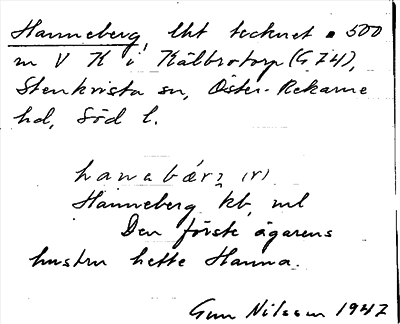 Hanneberg, lht tecknet • 500
m V K i Kälbrotorp (G 74),
Stenkvista sn, Öster-Rekarne
hd, Söd l.
hanabär̥ʒ (r)
Hanneberg kb, ml
Den förste ägarens
hustru hette Hanna.
Gun Nilsson 1947